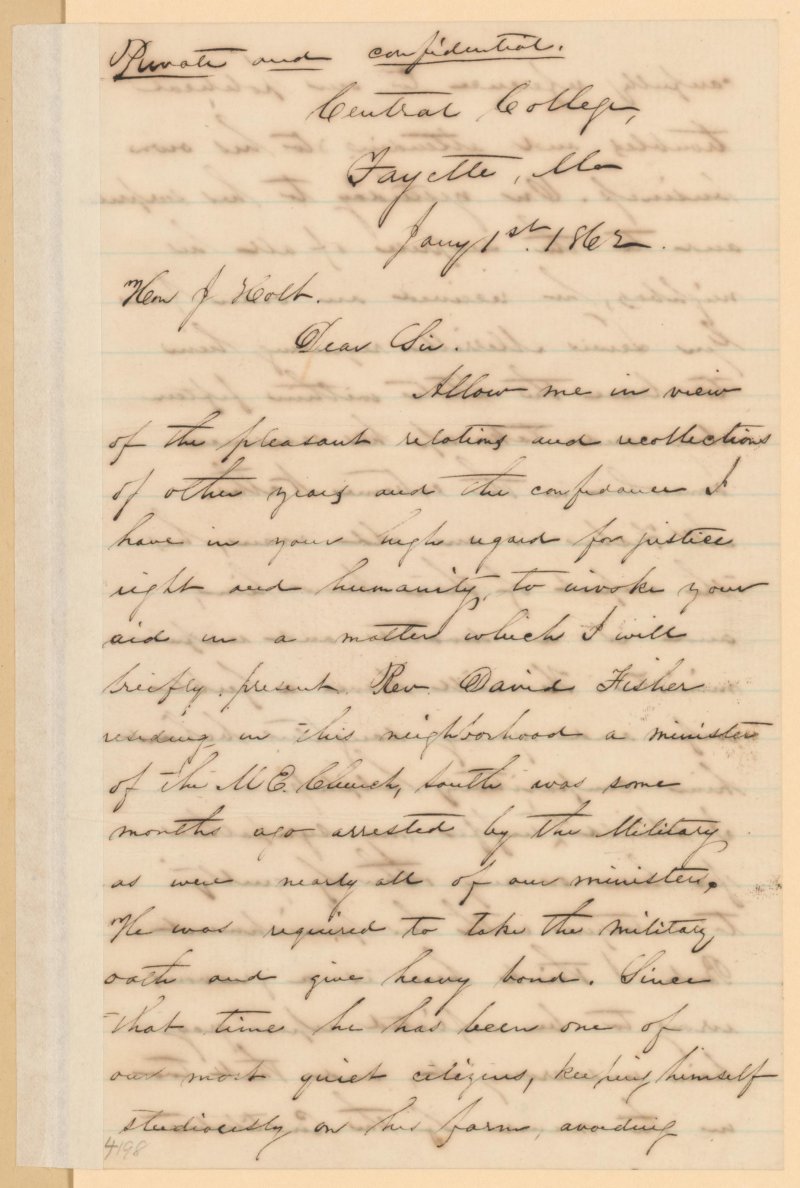 Private and confidential.
Central College,
Fayette, Mo
Jany 1st. 1862.
Hon J Holt.
Dear Sir.
Allow me in view
of the pleasant relations and recollections
of other years and the confidence I
have in your high regard for justice
right and humanity, to invoke your
aid in a matter which I will
briefly present. Rev. David Fisher
residing in this neighborhood a minister
of the M.E. Church, South was some
months ago arrested by the Military
as were nearly all of our ministers.
He was required to take the military
oath and give heavy bond. Since
that time he has been one of
our most quiet citizens, keeping himself
studiously on his farm, avoiding
4198